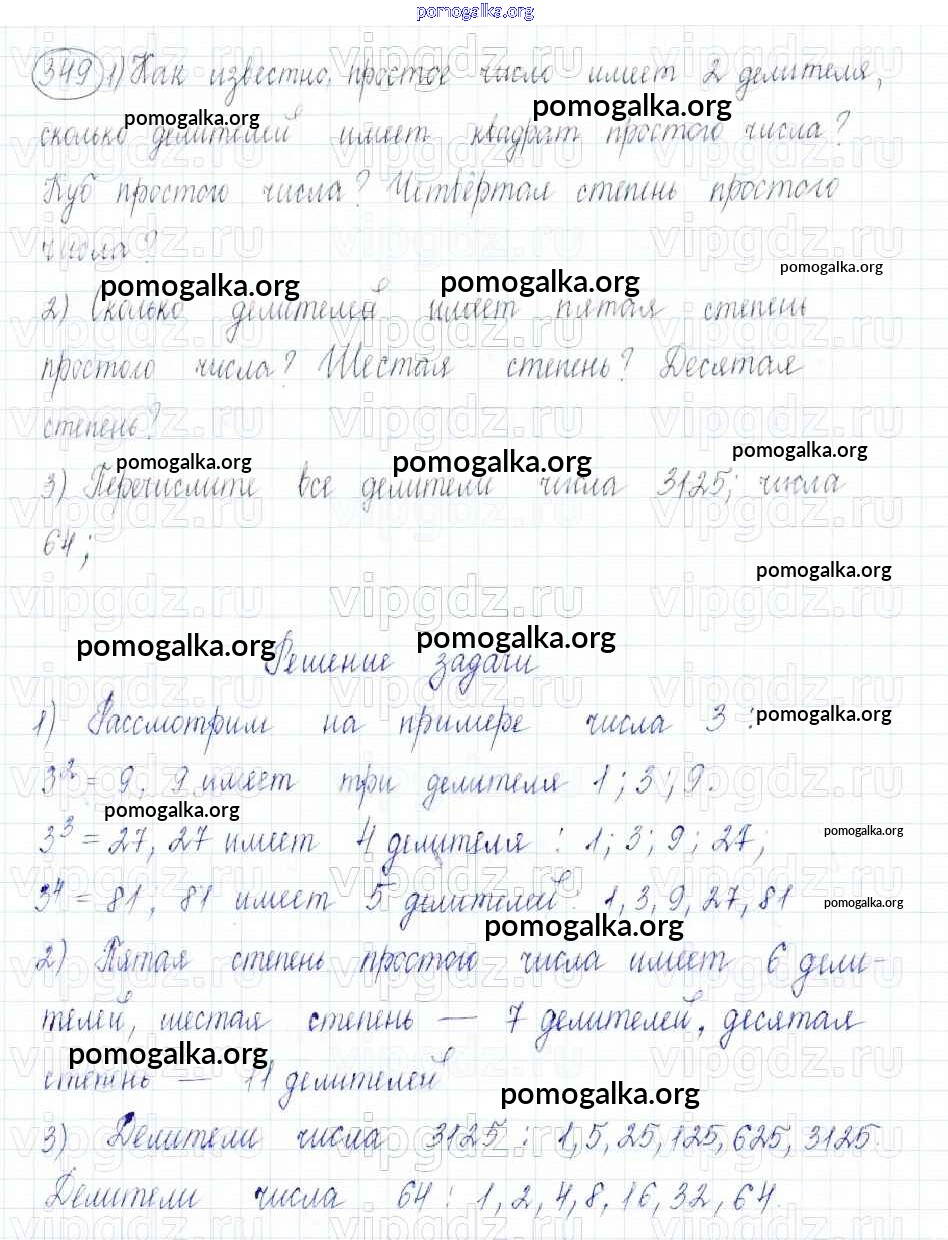 pomogalka.org
349 1) Как известно, простое число имеет 2 делителя,
pomogalka.org pomogalka.org
сколько делителей имеет квадрат простого числа?
Куб простого числа? Четвёртая степень простого
числа?
pomogalka.org pomogalka.org pomogalka.org
2) Сколько делителей имеет пятая степень
простого числа? Шестая степень? Десятая
степень?
pomogalka.org pomogalka.org pomogalka.org
3) Перечислите все делители числа 3125; числа
64;
pomogalka.org
pomogalka.org pomogalka.org
Решение задачи
1) Рассмотрим на примере числа 3:
pomogalka.org
3² = 9, 9 имеет три делителя 1; 3; 9.
pomogalka.org
3³ = 27, 27 имеет 4 делителя: 1; 3; 9; 27;
pomogalka.org
3⁴ = 81, 81 имеет 5 делителей: 1, 3, 9, 27, 81
pomogalka.org
pomogalka.org
2) Пятая степень простого числа имеет 6 дели-
телей, шестая степень — 7 делителей, десятая
pomogalka.org
степень — 11 делителей
pomogalka.org
3) Делители числа 3125: 1, 5, 25, 125, 625, 3125.
Делители числа 64: 1, 2, 4, 8, 16, 32, 64.
vipgdz.ru